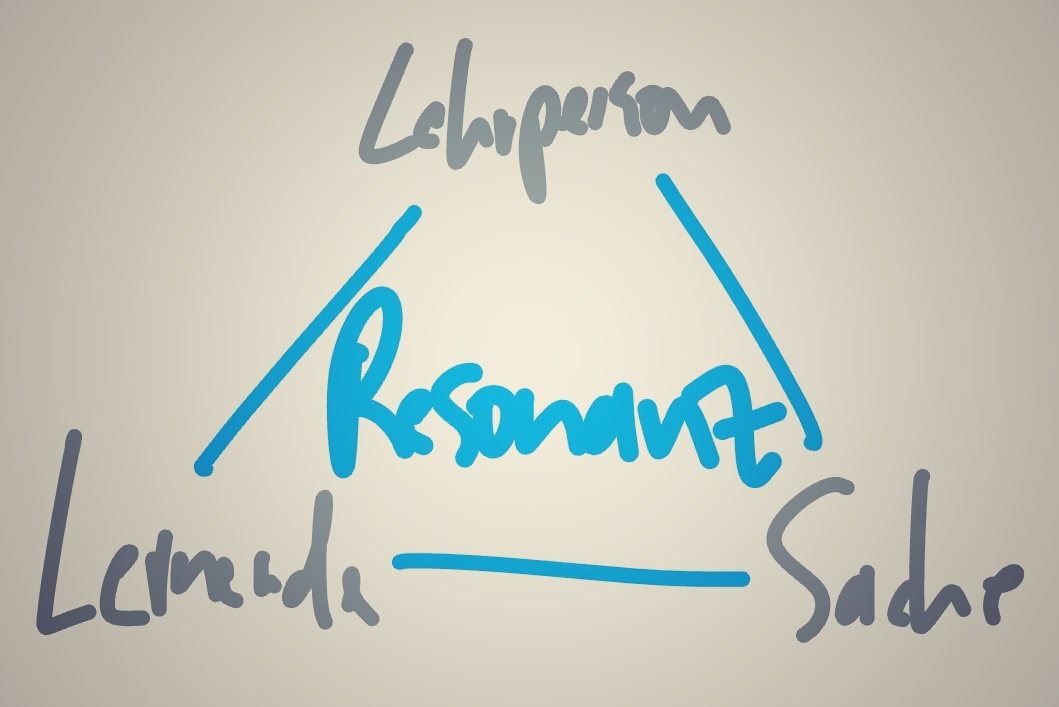 Lehrperson
Resonanz
Lernende
Sache